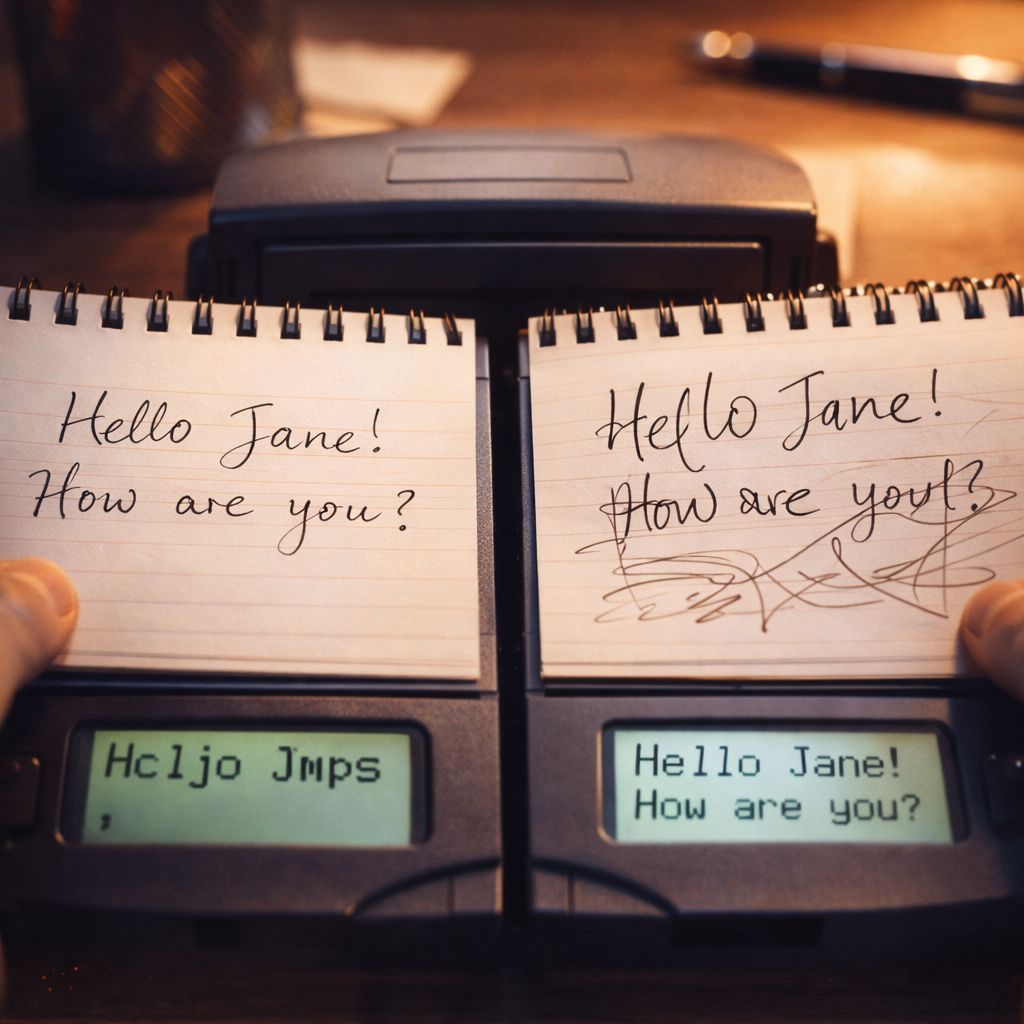 Hello Jane!
How are you?
Hello Jane!
How are you?
Hcljo Jmps
;
Hello Jane!
How are you?